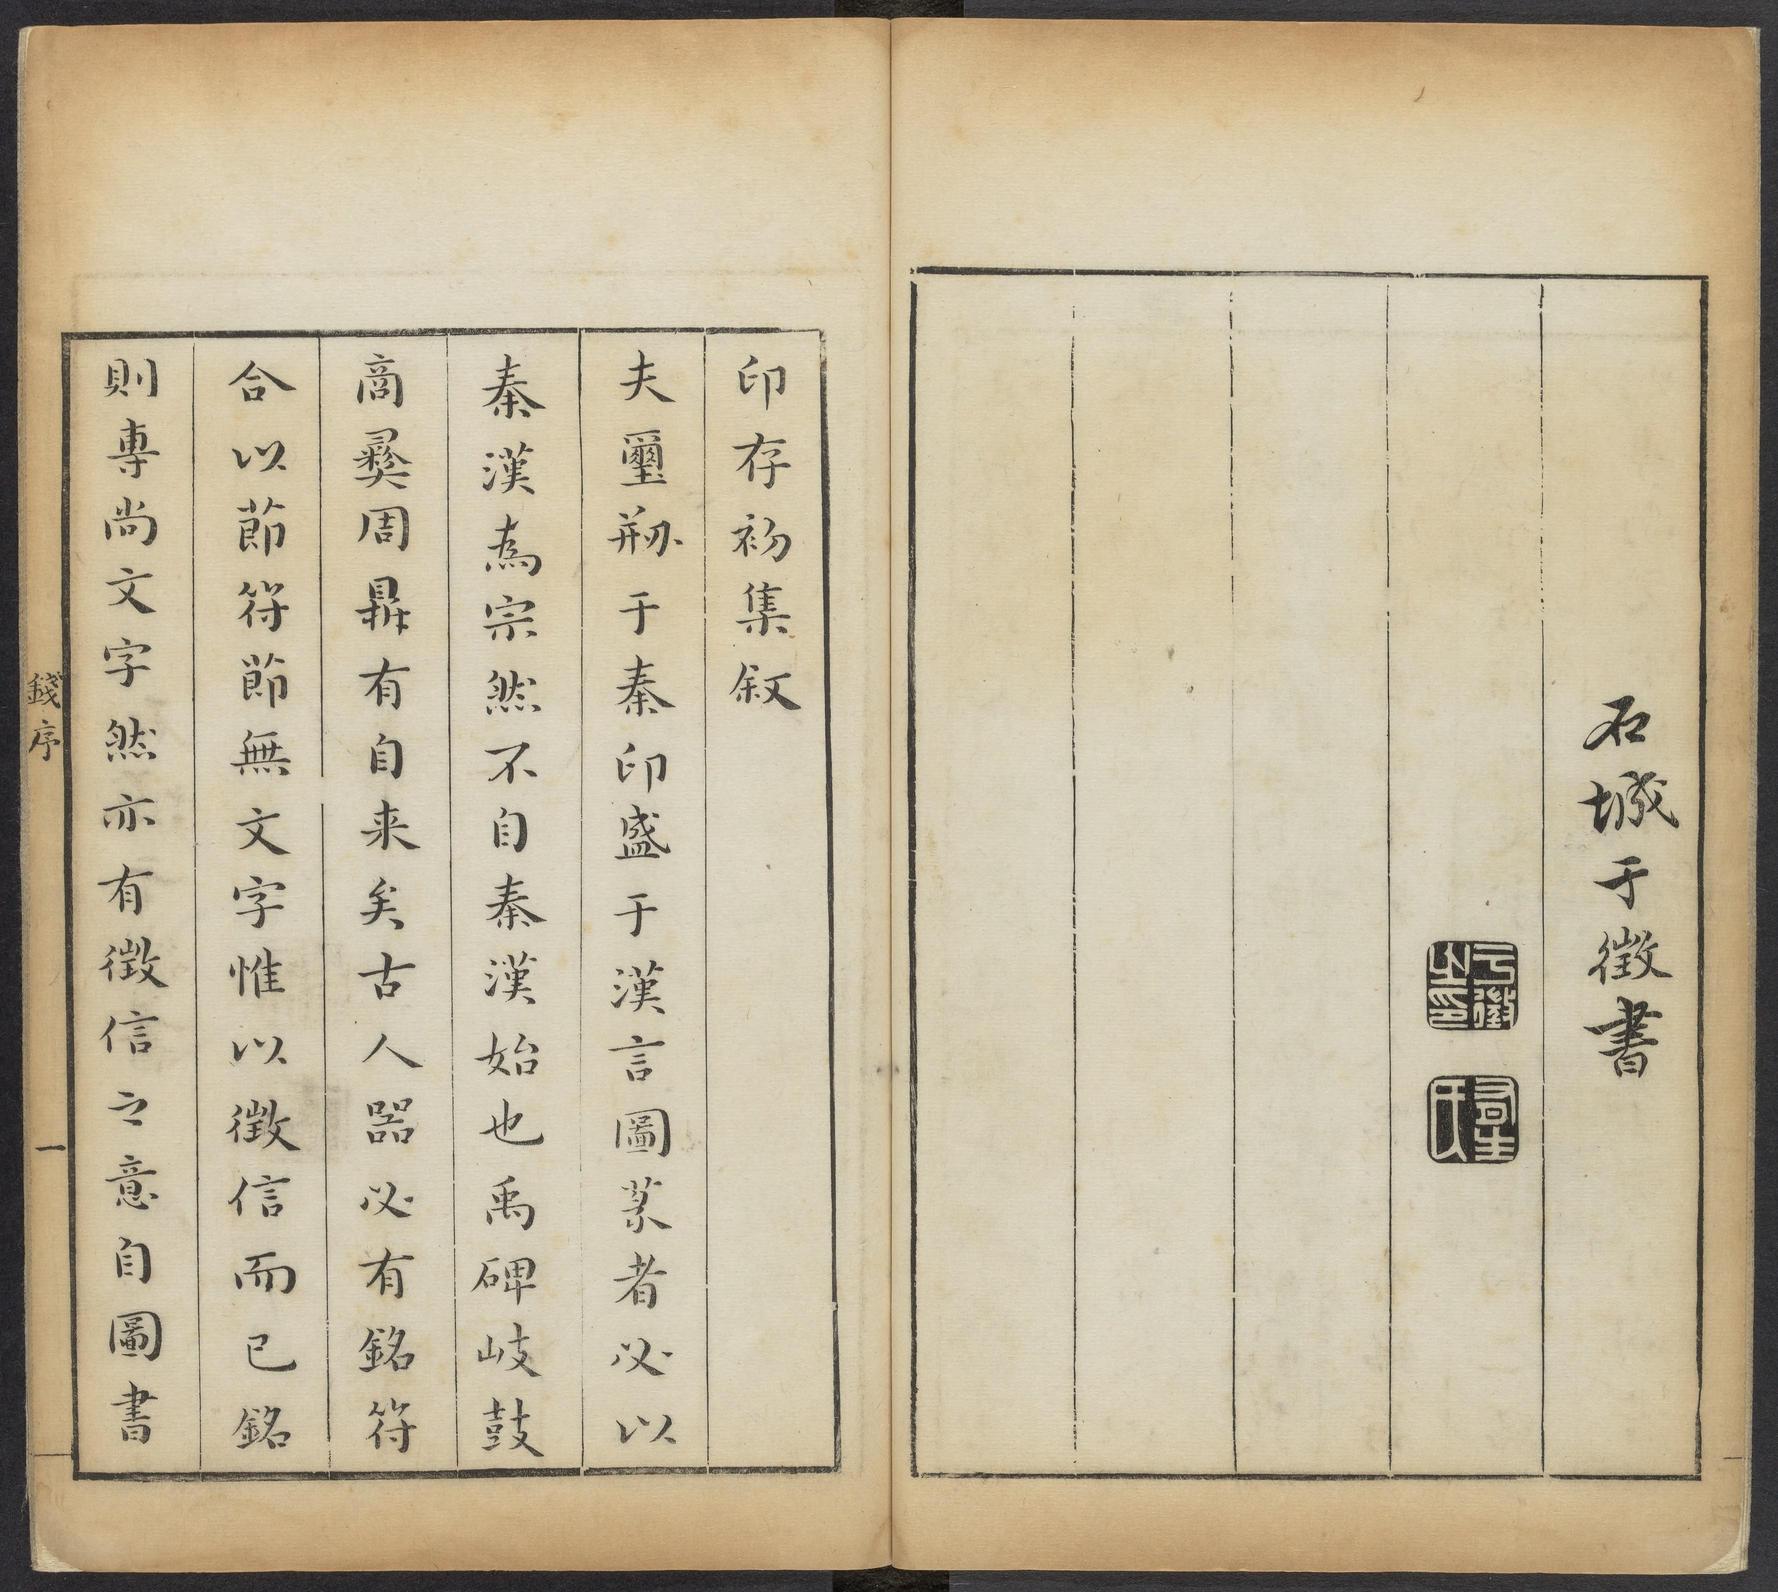 石城于徵書
于徵之印
印存初集敘
夫璽剏于秦印盛于漢言圖篆者必以
秦漢為宗然不自秦漢始也禹碑岐鼓
商彝周鼎有自来矣古人器必有銘符
合以節符節無文字惟以徵信而已銘
則專尚文字然亦有徵信之意自圖書
錢序
一